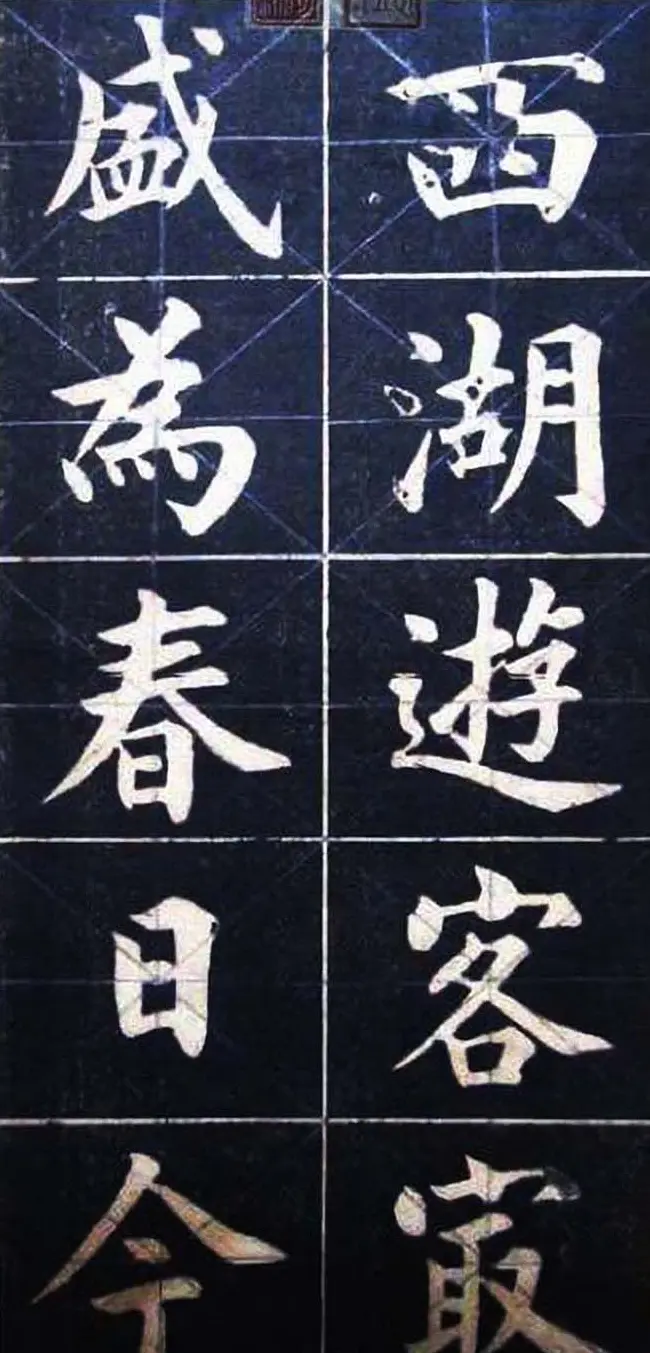 西湖遊客㝡
盛為春日今